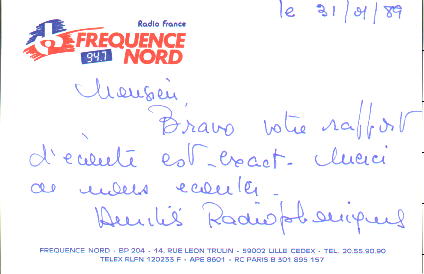 le 31/01/89
Radio France
FREQUENCE
94.7 NORD
Monsieur,
Bravo votre rapport
d'écoute est exact. Merci
de nous écouter.
Amitiés Radiophoniques
FREQUENCE NORD - BP 204 - 14, RUE LEON TRULIN - 59002 LILLE CEDEX - TEL. 20.55.90.90
TELEX RLFN 120233 F - APE 8601 - RC PARIS B 301 895 157